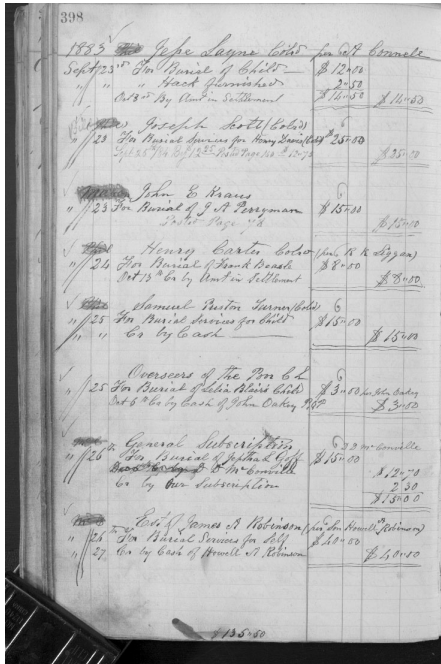 398
1883 Jesse Layne Cold per G A Connele
Sept 23rd For Burial of Child — $12.00
" " " Hack furnished 2.50
Oct 3rd By Amt in Settlement $14.50 $14.50
Joseph Scott (Cold) 6
" 23 For Burial Services for Henry Davis (Cold) $25.00
$25.00
John E Kraus 6
" 23 For Burial of J A Perryman $15.00
Page 78 $15.00
Henry Carter Cold (per K K Liggan)
" 24 For Burial of Frank Beasle $8.00
Oct 13th Cr by Amt in Settlement $8.00
Samuel Preston Turner (Cold) 6
" 25 For Burial Services for Child $15.00
" " Cr by Cash — $15.00
Overseers of the Poor C L 6
" 25 For Burial of Lelia Blair's Child $3.00 per John Oakey
Oct 6th Cr by Cash of John Oakey $3.00
General Subscription 6 D D McConville
" 26 For Burial of Jeptha L Goff $15.00
D O McConville $12.70
Cr by Our Subscription 2.30
$15.00
Est of James A Robinson (per Son Howell A Robinson)
" 26 For Burial Services for Self $40.00
" 27 Cr by Cash of Howell A Robinson $40.00
$135.50